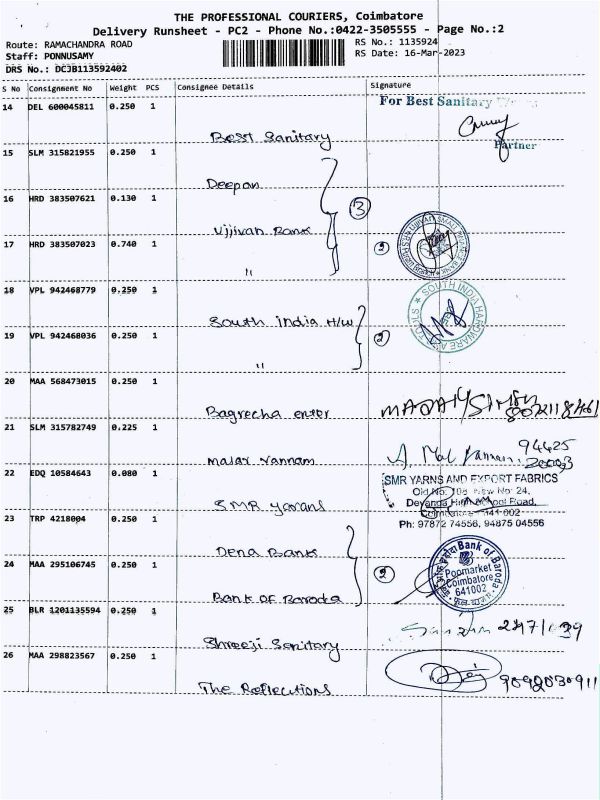 THE PROFESSIONAL COURIERS, Coimbatore
Delivery Runsheet - PC2 - Phone No.:0422-3505555 - Page No.:2
Route: RAMACHANDRA ROAD
RS No.: 1135924
Staff: PONNUSAMY
RS Date: 16-Mar-2023
DRS No.: DCJB113592402
S No Consignment No Weight PCS Consignee Details Signature
14 DEL 600045811 0.250 1
For Best Sanitary
Best Sanitary
Partner
15 SLM 315821955 0.250 1
Deepan
16 HRD 383507621 0.130 1
Ujjivan Bank
3
17 HRD 383507023 0.740 1
"
2
18 VPL 942468779 0.250 1
South India H/W
SOUTH INDIA HARDWARE & TOOLS
19 VPL 942468036 0.250 1
"
2
20 MAA 568473015 0.250 1
Bagrecha enter
21 SLM 315782749 0.225 1
Malar Vannam
94425
22 EDQ 10584643 0.080 1
SMR yarans
SMR YARNS AND EXPORT FABRICS
Old No. 108 New No: 24,
Road,
Ph: 97872 74556, 94875 04556
23 TRP 4218004 0.250 1
Dena Bank
24 MAA 295106745 0.250 1
Bank of Baroda
2
Bank of Baroda
Poomarket
Coimbatore
641002
25 BLR 1201135594 0.250 1
Shreeji Sanitary
26 MAA 298823567 0.250 1
The Reflections
9092030911